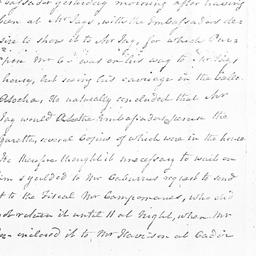 bassador yesterday morning after having
been at Mr Jays, with the Embassadors de-
sire to show it to Mr Jay, for which Pur-
Upon Mr C was on his way to Mr Jays
house, but seeing his carriage in the Calle
Alcala, He naturally concluded that Mr
Jay would the Embassador's
Gazettes, several Copies of which were in the house
He therefore thought it unnecessary to wait on
him & yielded to Mr Cabarrus request to send
it to the Fiscal Mr Campomanes, who did
not return it until 11 at Night, when Mr
inclosed it to Mr Harrison at Cadiz